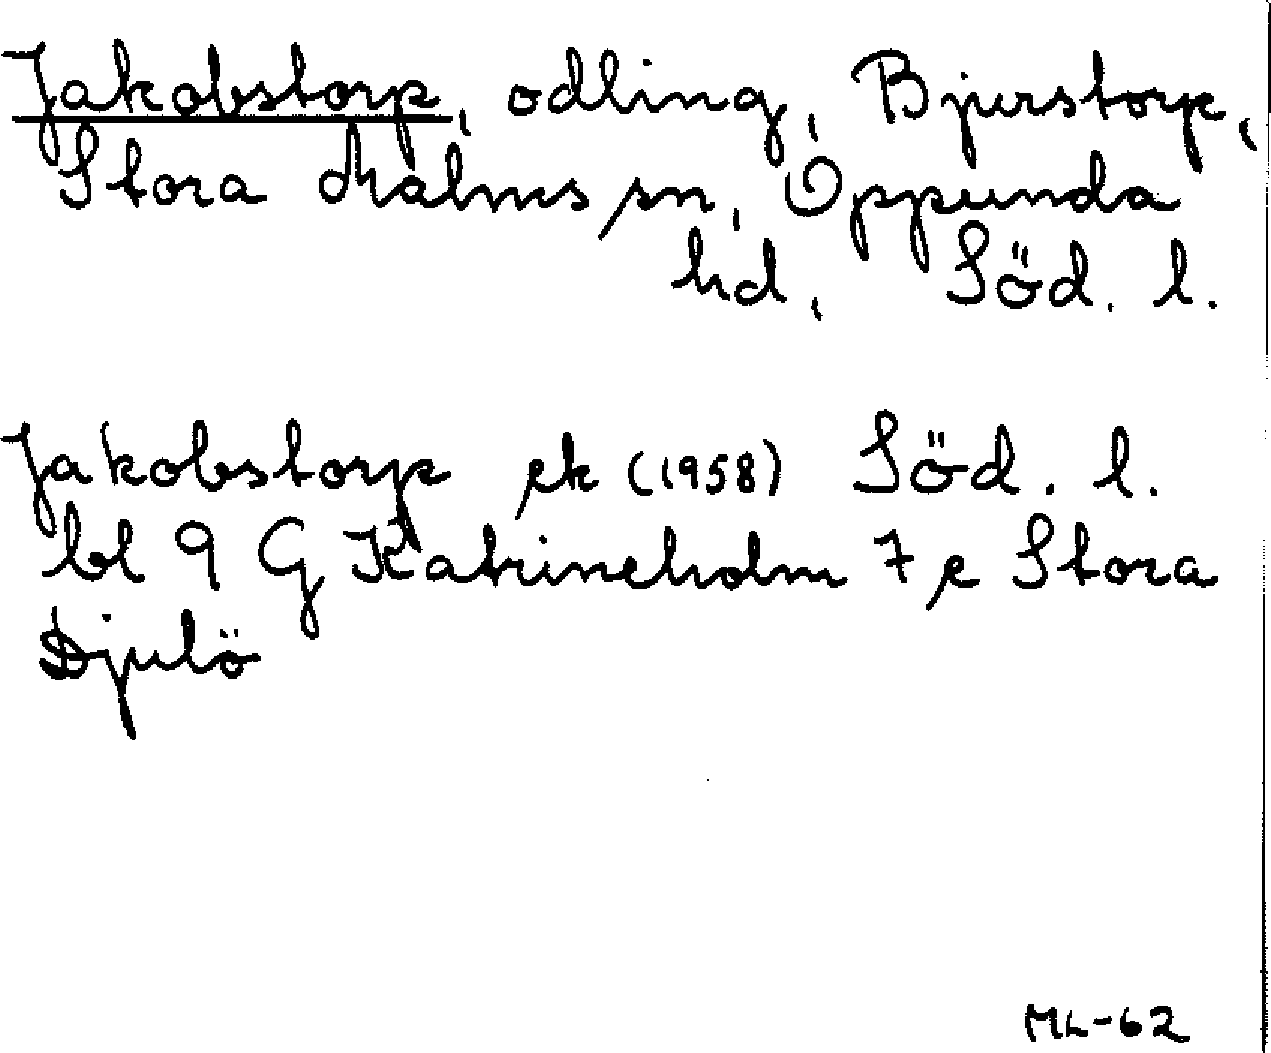 Jakobstorp, odling, Bjurstorp,
Stora Malms sn, Oppunda
hd, Söd. l.
Jakobstorp ek (1958) Söd. l.
bl 9 G Katrineholm 7 e Stora
Djulö
ML-62